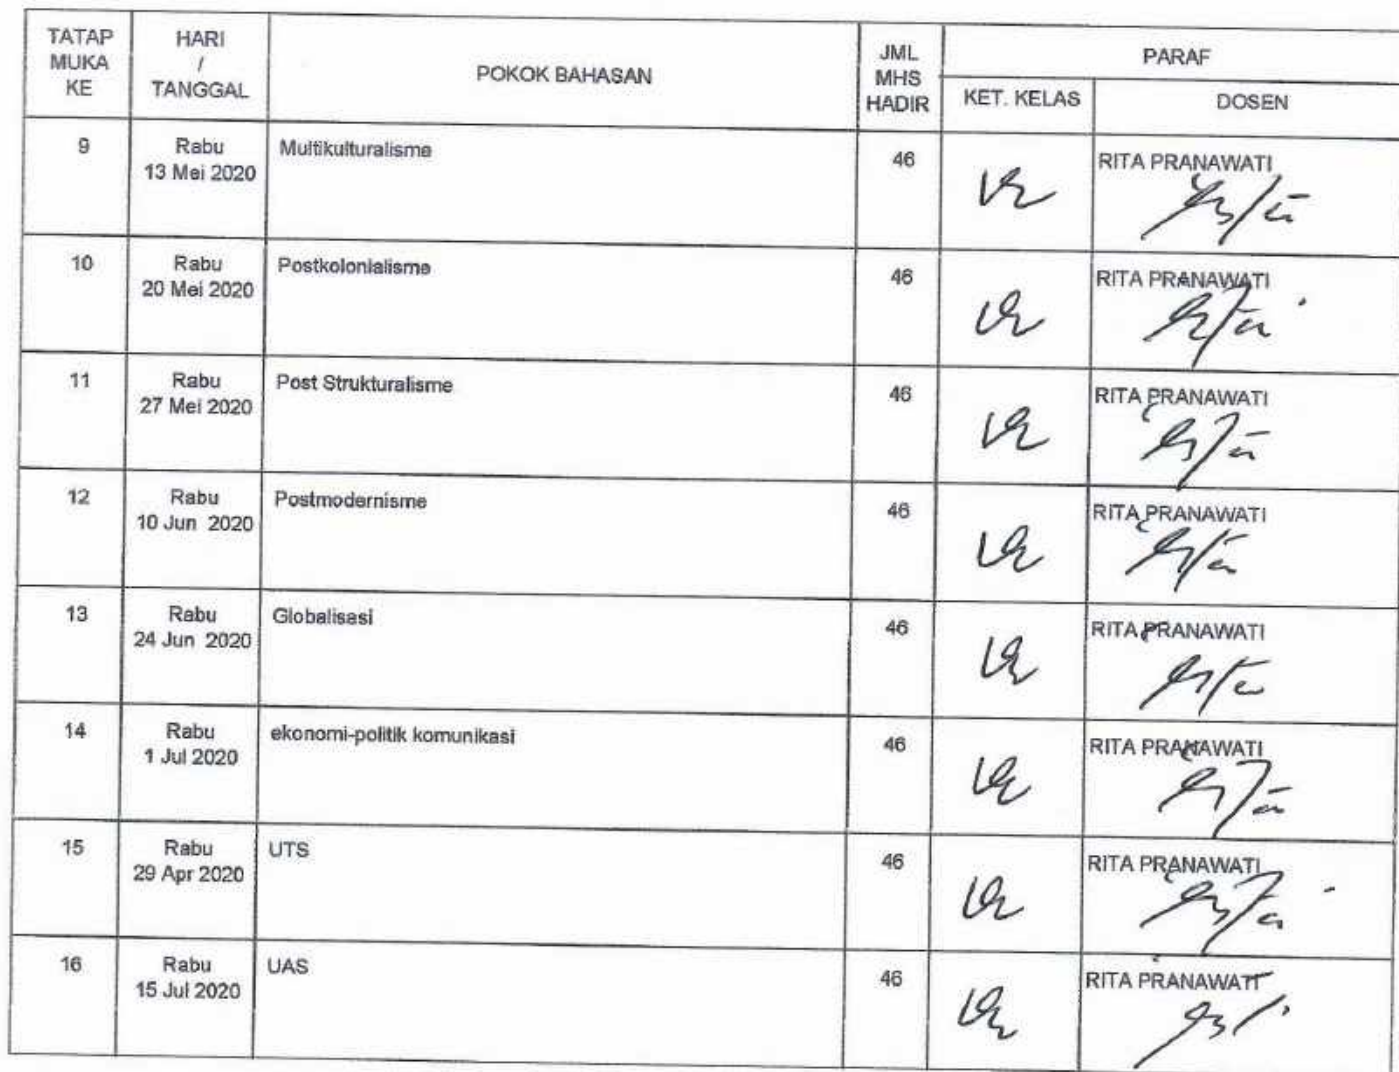 TATAP
MUKA
KE
HARI
/
TANGGAL
POKOK BAHASAN
JML
MHS
HADIR
PARAF
KET. KELAS
DOSEN
9
Rabu
13 Mei 2020
Multikulturalisme
46
RITA PRANAWATI
10
Rabu
20 Mei 2020
Postkolonialisme
46
RITA PRANAWATI
11
Rabu
27 Mei 2020
Post Strukturalisme
46
RITA PRANAWATI
12
Rabu
10 Jun 2020
Postmodernisme
46
RITA PRANAWATI
13
Rabu
24 Jun 2020
Globalisasi
46
RITA PRANAWATI
14
Rabu
1 Jul 2020
ekonomi-politik komunikasi
46
RITA PRANAWATI
15
Rabu
29 Apr 2020
UTS
46
RITA PRANAWATI
16
Rabu
15 Jul 2020
UAS
46
RITA PRANAWATI